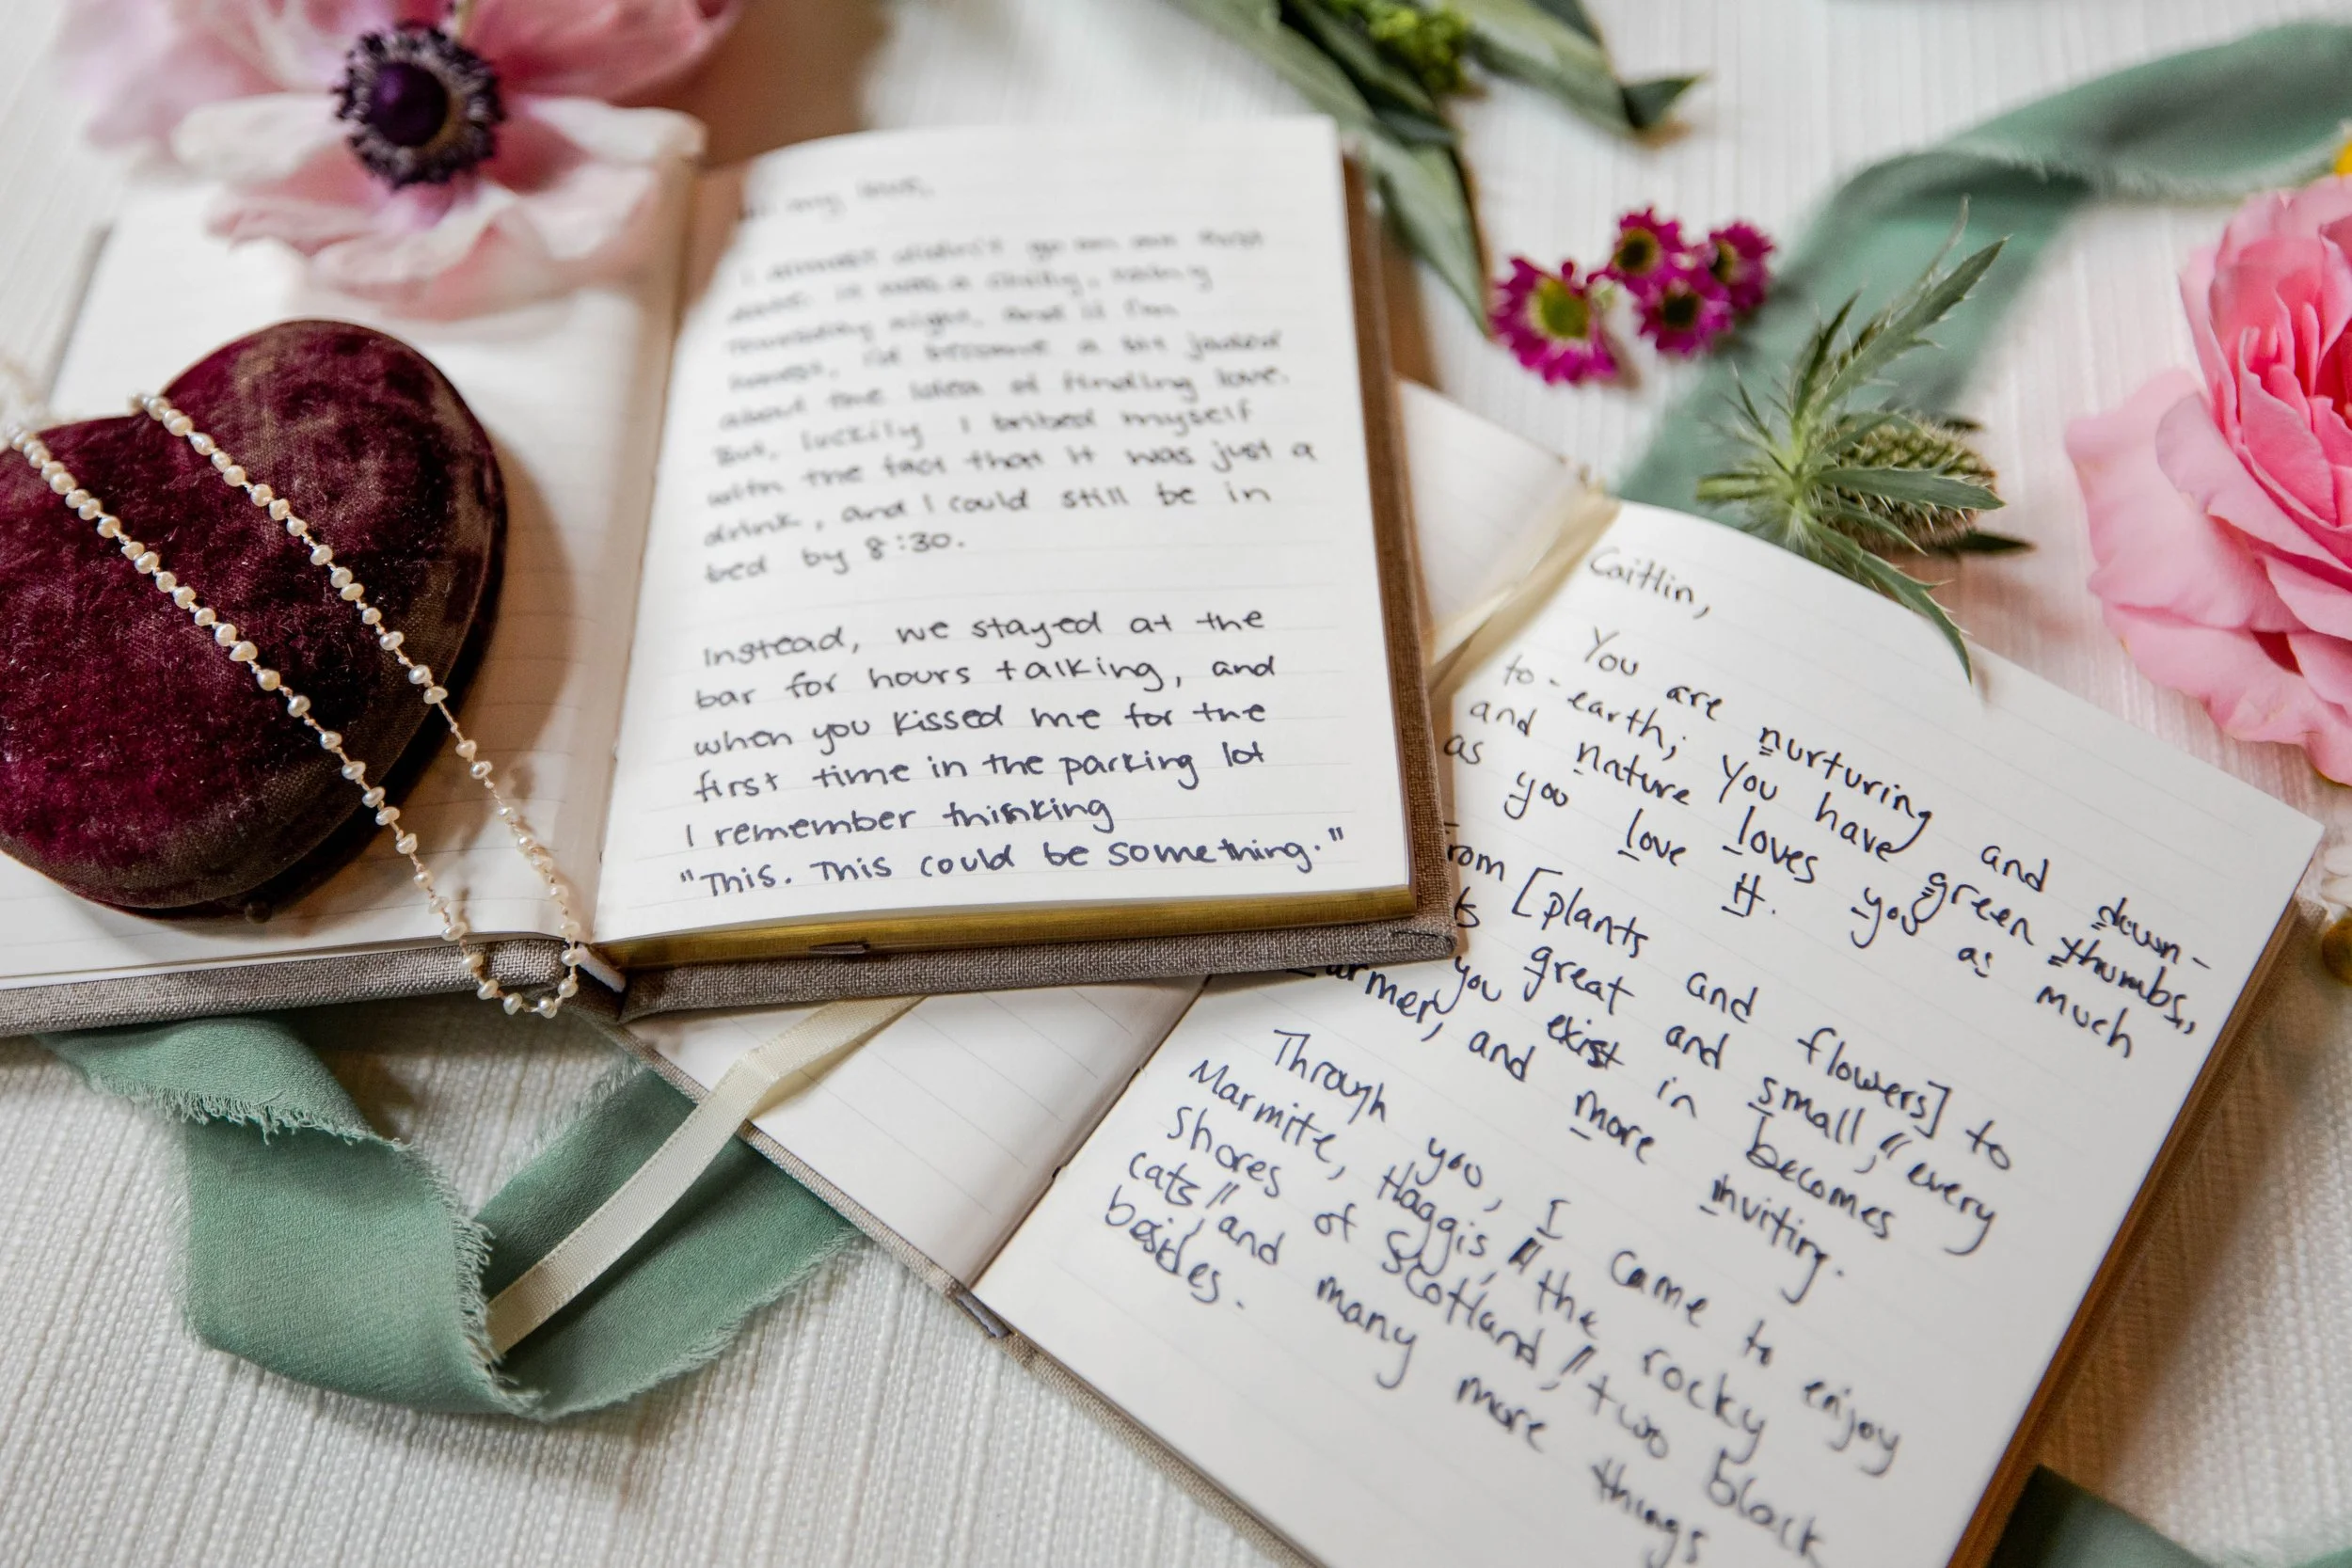 my love,
I almost didn't go on our first
date. It was a chilly, rainy
Thursday night, and if I'm
honest, I'd become a bit jaded
about the idea of finding love.
But, luckily I bribed myself
with the fact that it was just a
drink, and I could still be in
bed by 8:30.
Instead, we stayed at the
bar for hours talking, and
when you kissed me for the
first time in the parking lot
I remember thinking
"This. This could be something."
Caitlin,
You are nurturing and down-
to-earth; you have green thumbs,
and nature loves you as much
as you love it.
[plants and flowers] to
great and small, // every
you exist in becomes
and more inviting.
Through you, I came to enjoy
Marmite, Haggis, // the rocky
shores of Scotland, // two black
cats, // and many more things
besides.